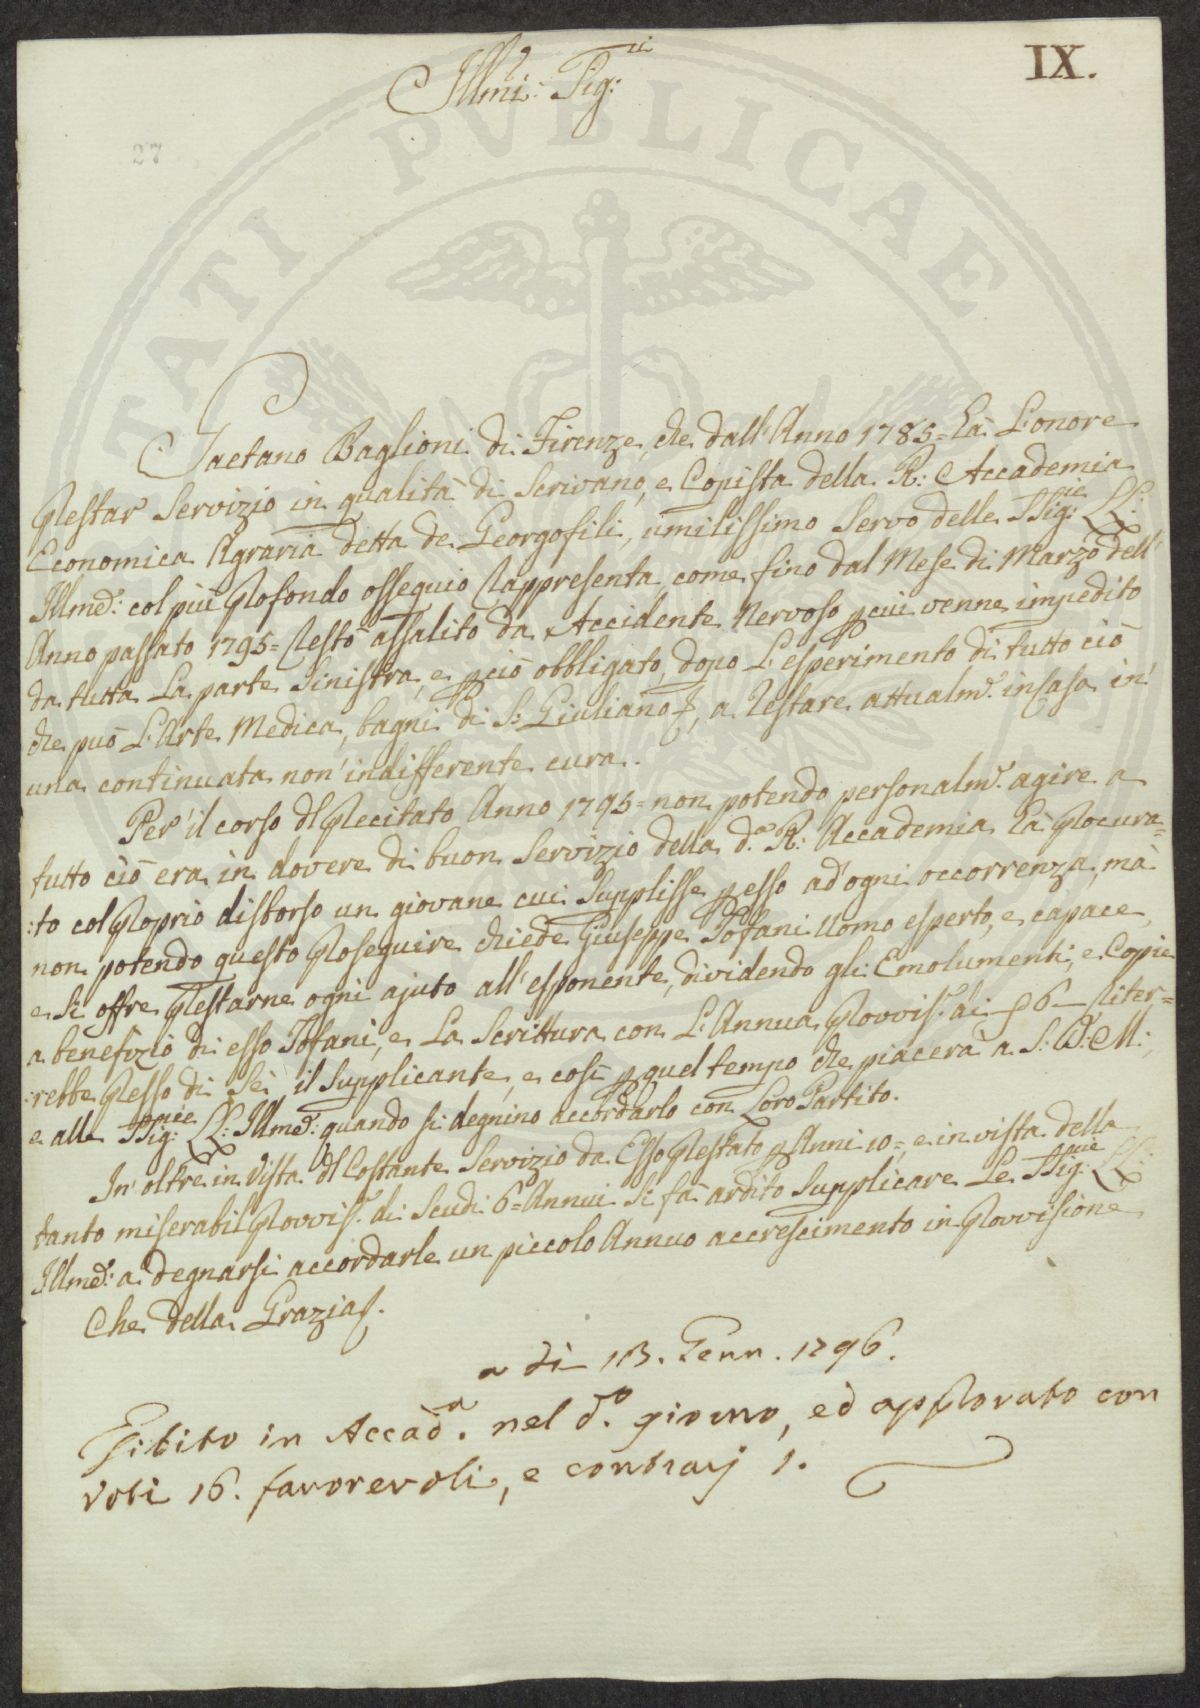 IX.
Illmi: Sig:ri
27
Gaetano Baglioni di Firenze, che dall'Anno 1785= hà L'onore
prestar Servizio in qualità di Scrivano, e Copista della R: Accademia
Economica Agraria detta de Georgofili, umilissimo Servo delle SSig:rie LL:
Illme: col più profondo ossequio rappresenta, come fino dal Mese di Marzo dell'
Anno passato 1795= restò assalito da Accidente Nervoso p cui venne impedito
da tutta La parte Sinistra, e p ciò obbligato, dopo L'esperimento di tutto ciò
che può L'Arte Medica, bagni di S: Giuliano, a restare attualme. in Casa in
una continuata non indifferente cura.
Per il corso dl precitato Anno 1795= non potendo personalme. agire a
tutto ciò era in dovere di buon Servizio della d.a R: Accademia hà procura=
:to col proprio disborso un giovane cui Supplisse p esso ad ogni occorrenza, mà
non potendo questo proseguire chiede Giuseppe Tofani Uomo esperto, e capace,
e si offre prestarne ogni ajuto all'esponente, dividendo gli Emolumenti, e Copie
a benefizio di esso Tofani, e La Scrittura con L'Annua provvis.e di 6 riter=
:rebbe presso di Sè il Supplicante, e così p quel tempo che piacerà a S: A: M:,
e alle SSig:rie LL: Illme: quando si degnino accordarlo con Loro Partito.
In oltre in Vista dl Costante Servizio da Esso prestato p Anni 10=, e in vista della
tanto miserabil provvis.e di Scudi 6= Annui si fà ardito Supplicare Le SSig:rie LL:
Illme: a degnarsi accordarle un piccolo Annuo accrescimento in provvisione
Che della Grazia.
a dì 13. Genn. 1796.
Esibito in Accad.a nel d.o giorno, ed approvato con
voti 16. favorevoli, e contrarj 1.